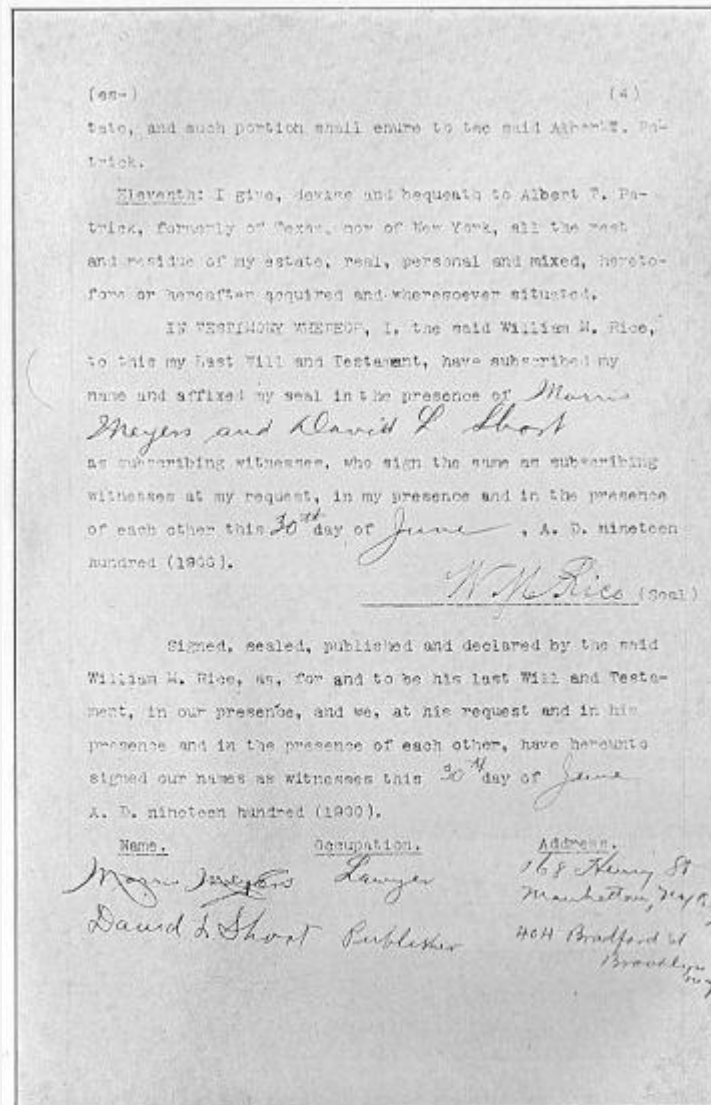 (es-) (4)
tate, and such portion shall enure to the said Albert T. Pa-
trick.
Eleventh: I give, devise and bequeath to Albert T. Pa-
trick, formerly of Texas, now of New York, all the rest
and residue of my estate, real, personal and mixed, hereto-
fore or hereafter acquired and wheresoever situated.
IN TESTIMONY WHEREOF, I, the said William M. Rice,
to this my Last Will and Testament, have subscribed my
name and affixed my seal in the presence of Morris
Meyers and David L Short
as subscribing witnesses, who sign the same as subscribing
witnesses at my request, in my presence and in the presence
of each other this 30th day of June , A. D. nineteen
hundred (1900).
W M Rice (Seal)
Signed, sealed, published and declared by the said
William M. Rice, as, for and to be his last Will and Testa-
ment, in our presence, and we, at his request and in his
presence and in the presence of each other, have hereunto
signed our names as witnesses this 30th day of June
A. D. nineteen hundred (1900).
Name. Occupation. Address.
Morris Meyers Lawyer 168 Henry St
Manhattan, N.Y.
David L. Short Publisher 404 Bradford St
Brooklyn
N.Y.